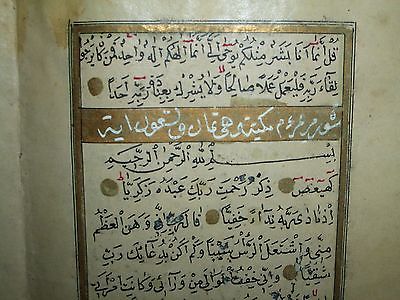 قُلْ اِنَّمَا اَنَا بَشَرٌ مِثْلُكُمْ يُوحٰى اِلَىَّ اَنَّمَا اِلٰهُكُمْ اِلٰهٌ وَاحِدٌ فَمَنْ كَانَ يَرْجُو
لِقَاءَ رَبِّهِ فَلْيَعْمَلْ عَمَلًا صَالِحًا وَلَا يُشْرِكْ بِعِبَادَةِ رَبِّهِ اَحَدًا
سورة مريم مكية وهى ثمان وتسعون اية
بِسْمِ اللّٰهِ الرَّحْمٰنِ الرَّحِيمِ
كٓهٰيٰعٓصٓ ذِكْرُ رَحْمَتِ رَبِّكَ عَبْدَهُ زَكَرِيَّا
اِذْ نَادٰى رَبَّهُ نِدَاءً خَفِيًّا قَالَ رَبِّ اِنِّى وَهَنَ الْعَظْمُ
مِنِّى وَاشْتَعَلَ الرَّأْسُ شَيْبًا وَلَمْ اَكُنْ بِدُعَائِكَ رَبِّ
شَقِيًّا وَاِنِّى خِفْتُ الْمَوَالِىَ مِنْ وَرَائِى وَكَانَتِ امْرَاَتِى